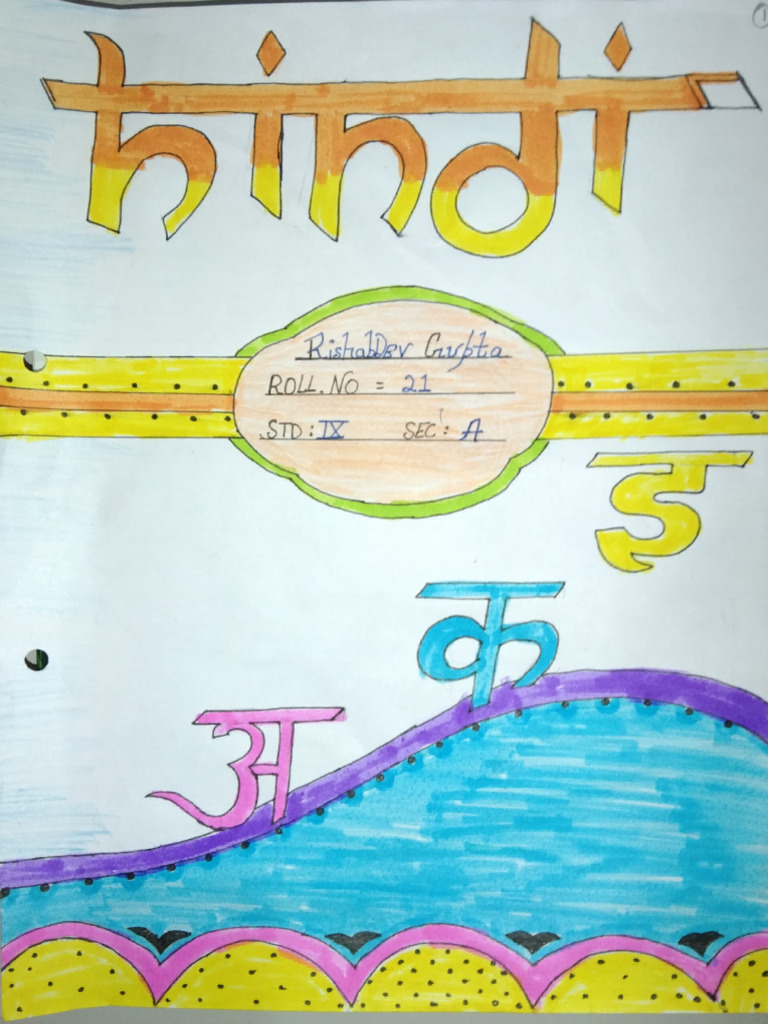 hindi
RishabDev Gupta
ROLL.NO = 21
STD : IX SEC : A
इ
क
अ